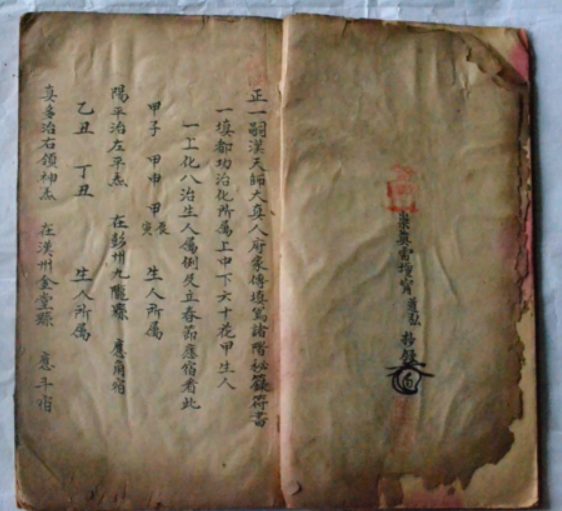 崇真雷壇 弘 抄錄
正一嗣漢天師大真人府家傳填寫諸階秘籙符書
一填都功治化所屬上中下六十花甲生人
一上化八治生人屬例及立春節應宿看此
甲子 甲申 甲辰寅 生人所屬
陽平治左平炁 在彭州九隴縣 應角宿
乙丑 丁丑 生人所屬
真多治右領神炁 在漢州金堂縣 應斗宿